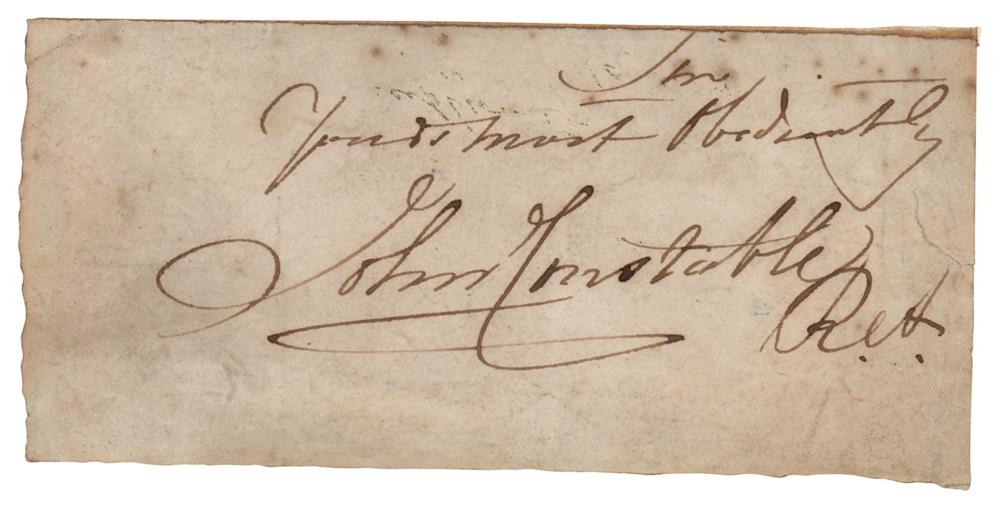 Sir
Yours most Obediently
John Constable
R.A.